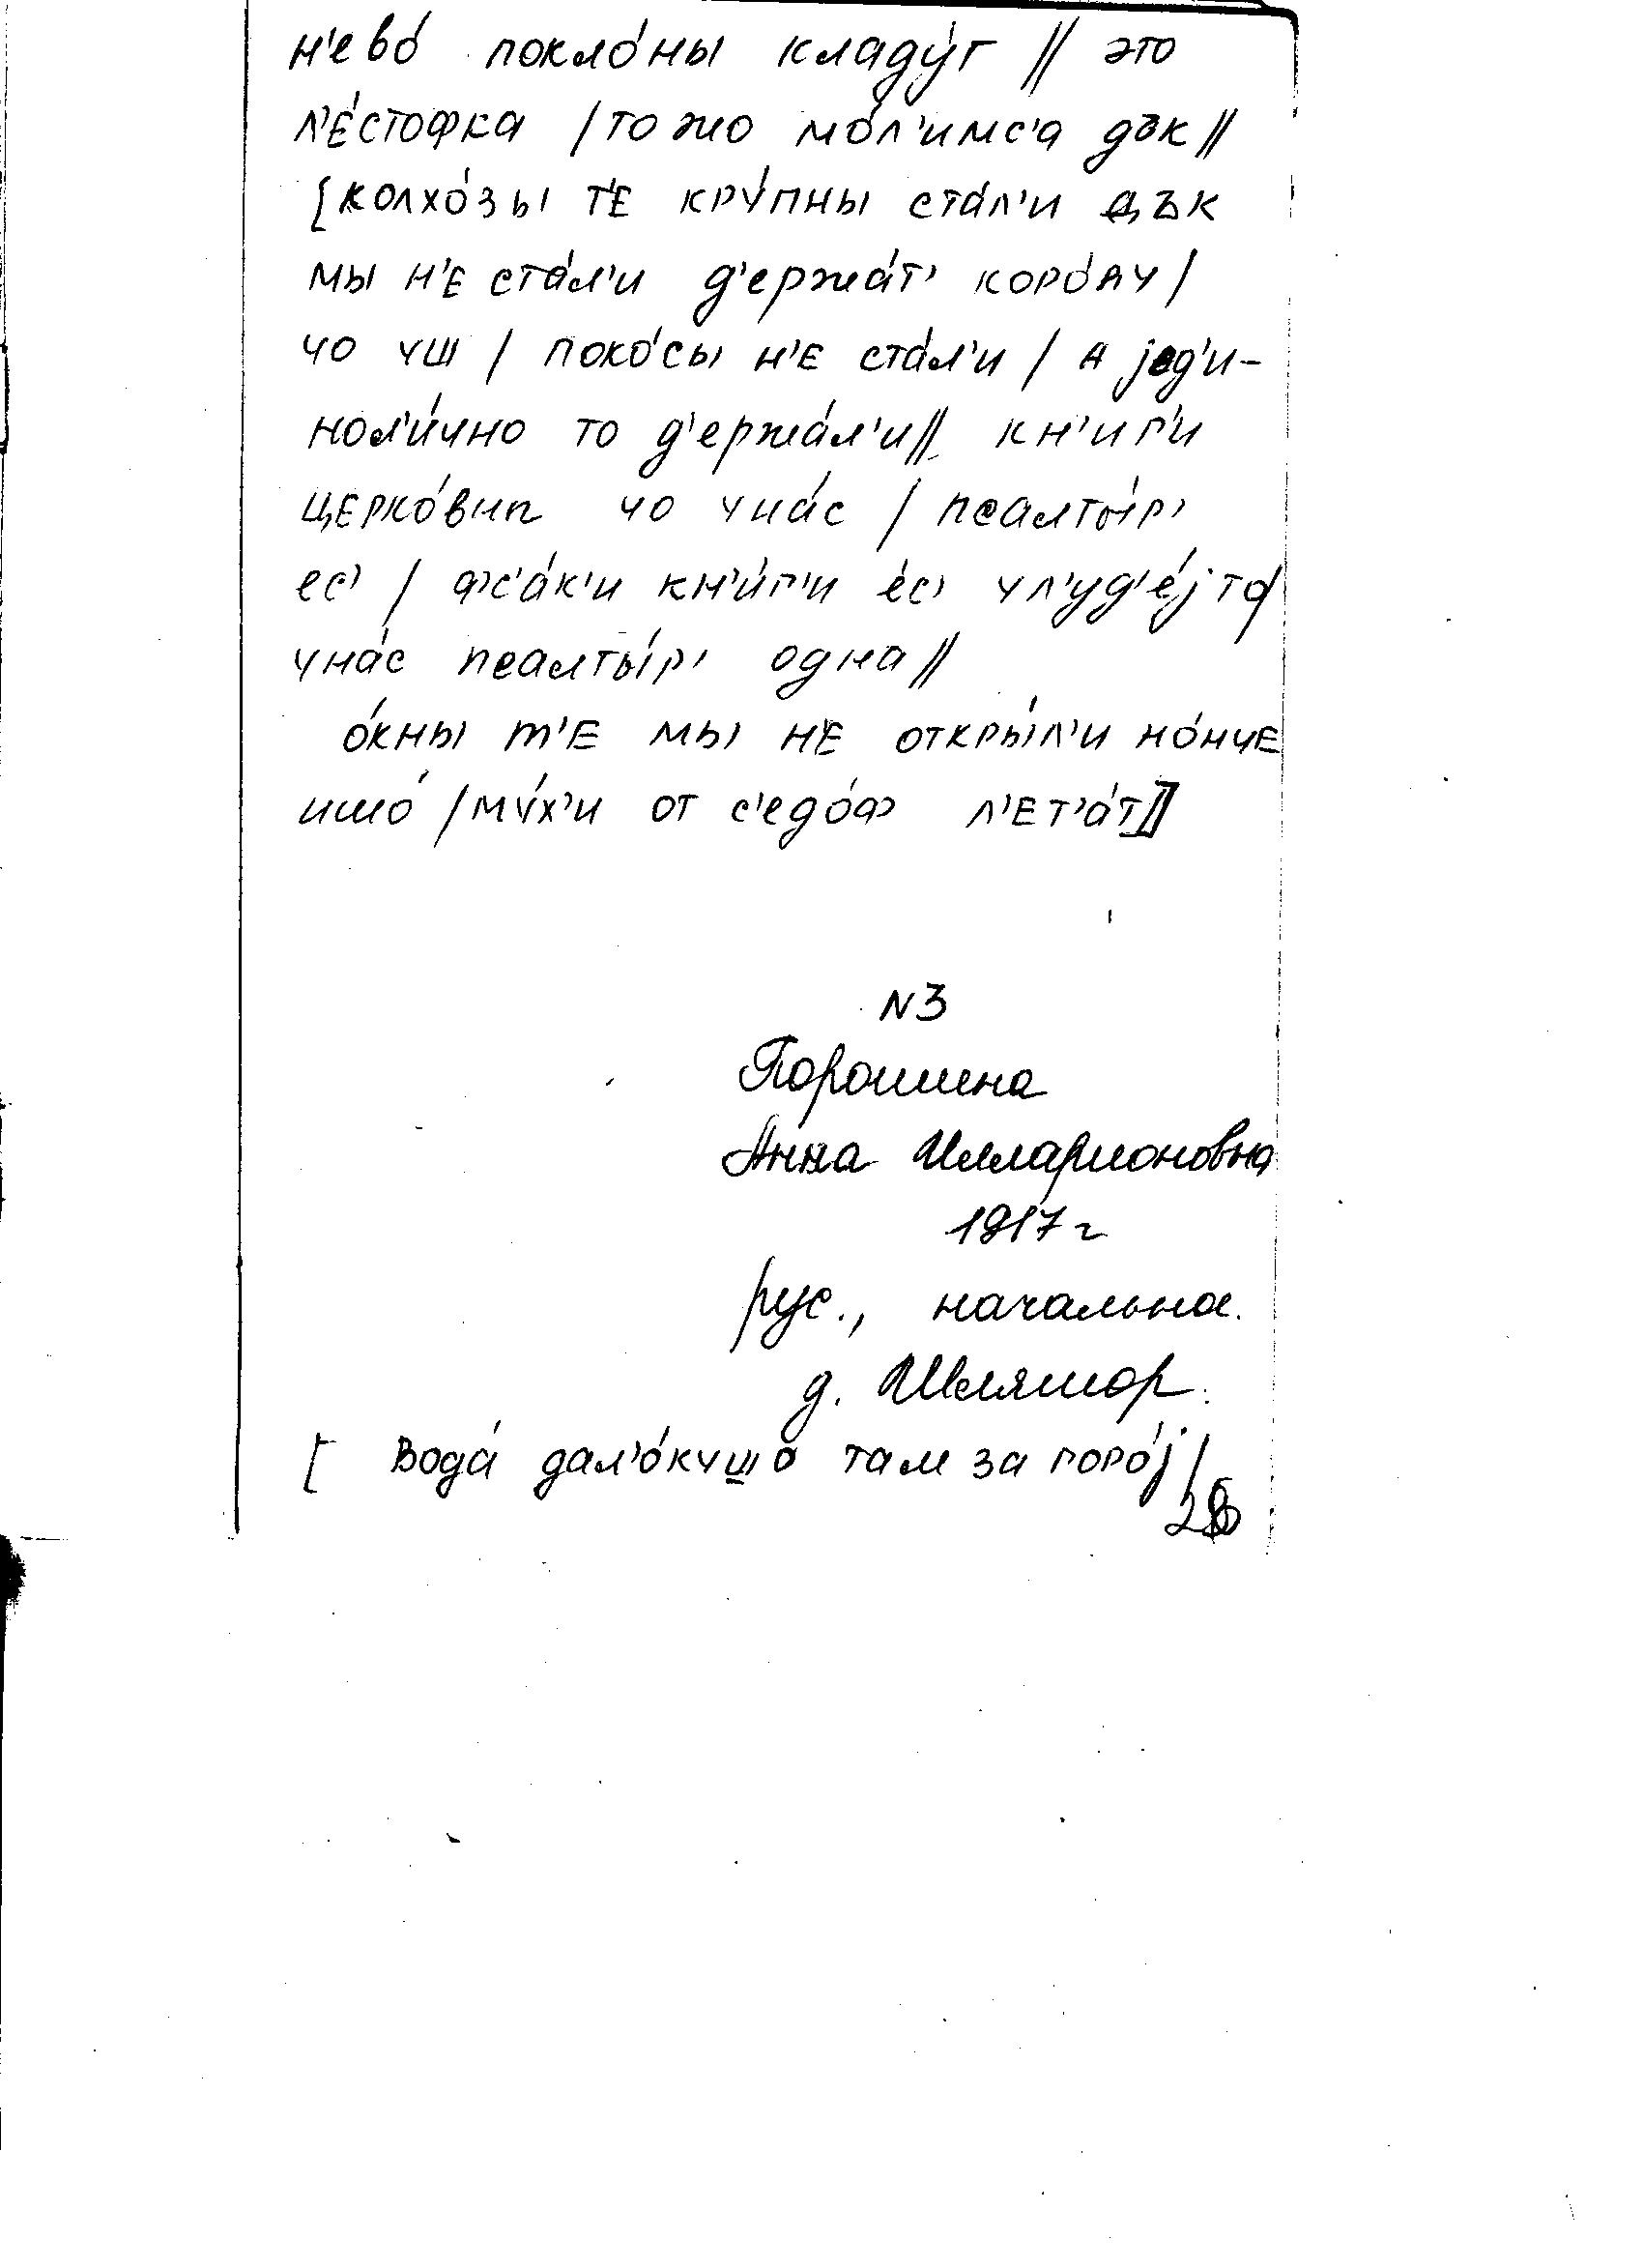 н'ево́ покло́ны кладу́т // это
л'е́стофка / то жо мо́л'имс'а дък //
[колхо́зы т'е кру́пны ста́л'и дък
мы н'е ста́л'и д'ержа́т' коро́ву /
чо уш / поко́сы н'е ста́л'и / а jед'и-
нол'и́чно то д'ержа́л'и // кн'иг'и
церко́вны чо уна́с / псалты́р'
ес' / фс'а́к'и кн'и́г'и е́с' ул'уд'е́j то /
уна́с псалты́р' одна //
о́кны т'е мы н'е откры́л'и но́нче
ишо́ / му́х'и от с'едо́ф л'ет'а́т //]
N3
Порошина
Анна Илларионовна
1917 г
рус., начальное.
д. Шляшор.
[ Вода́ дал'о́кушо там за горо́j /